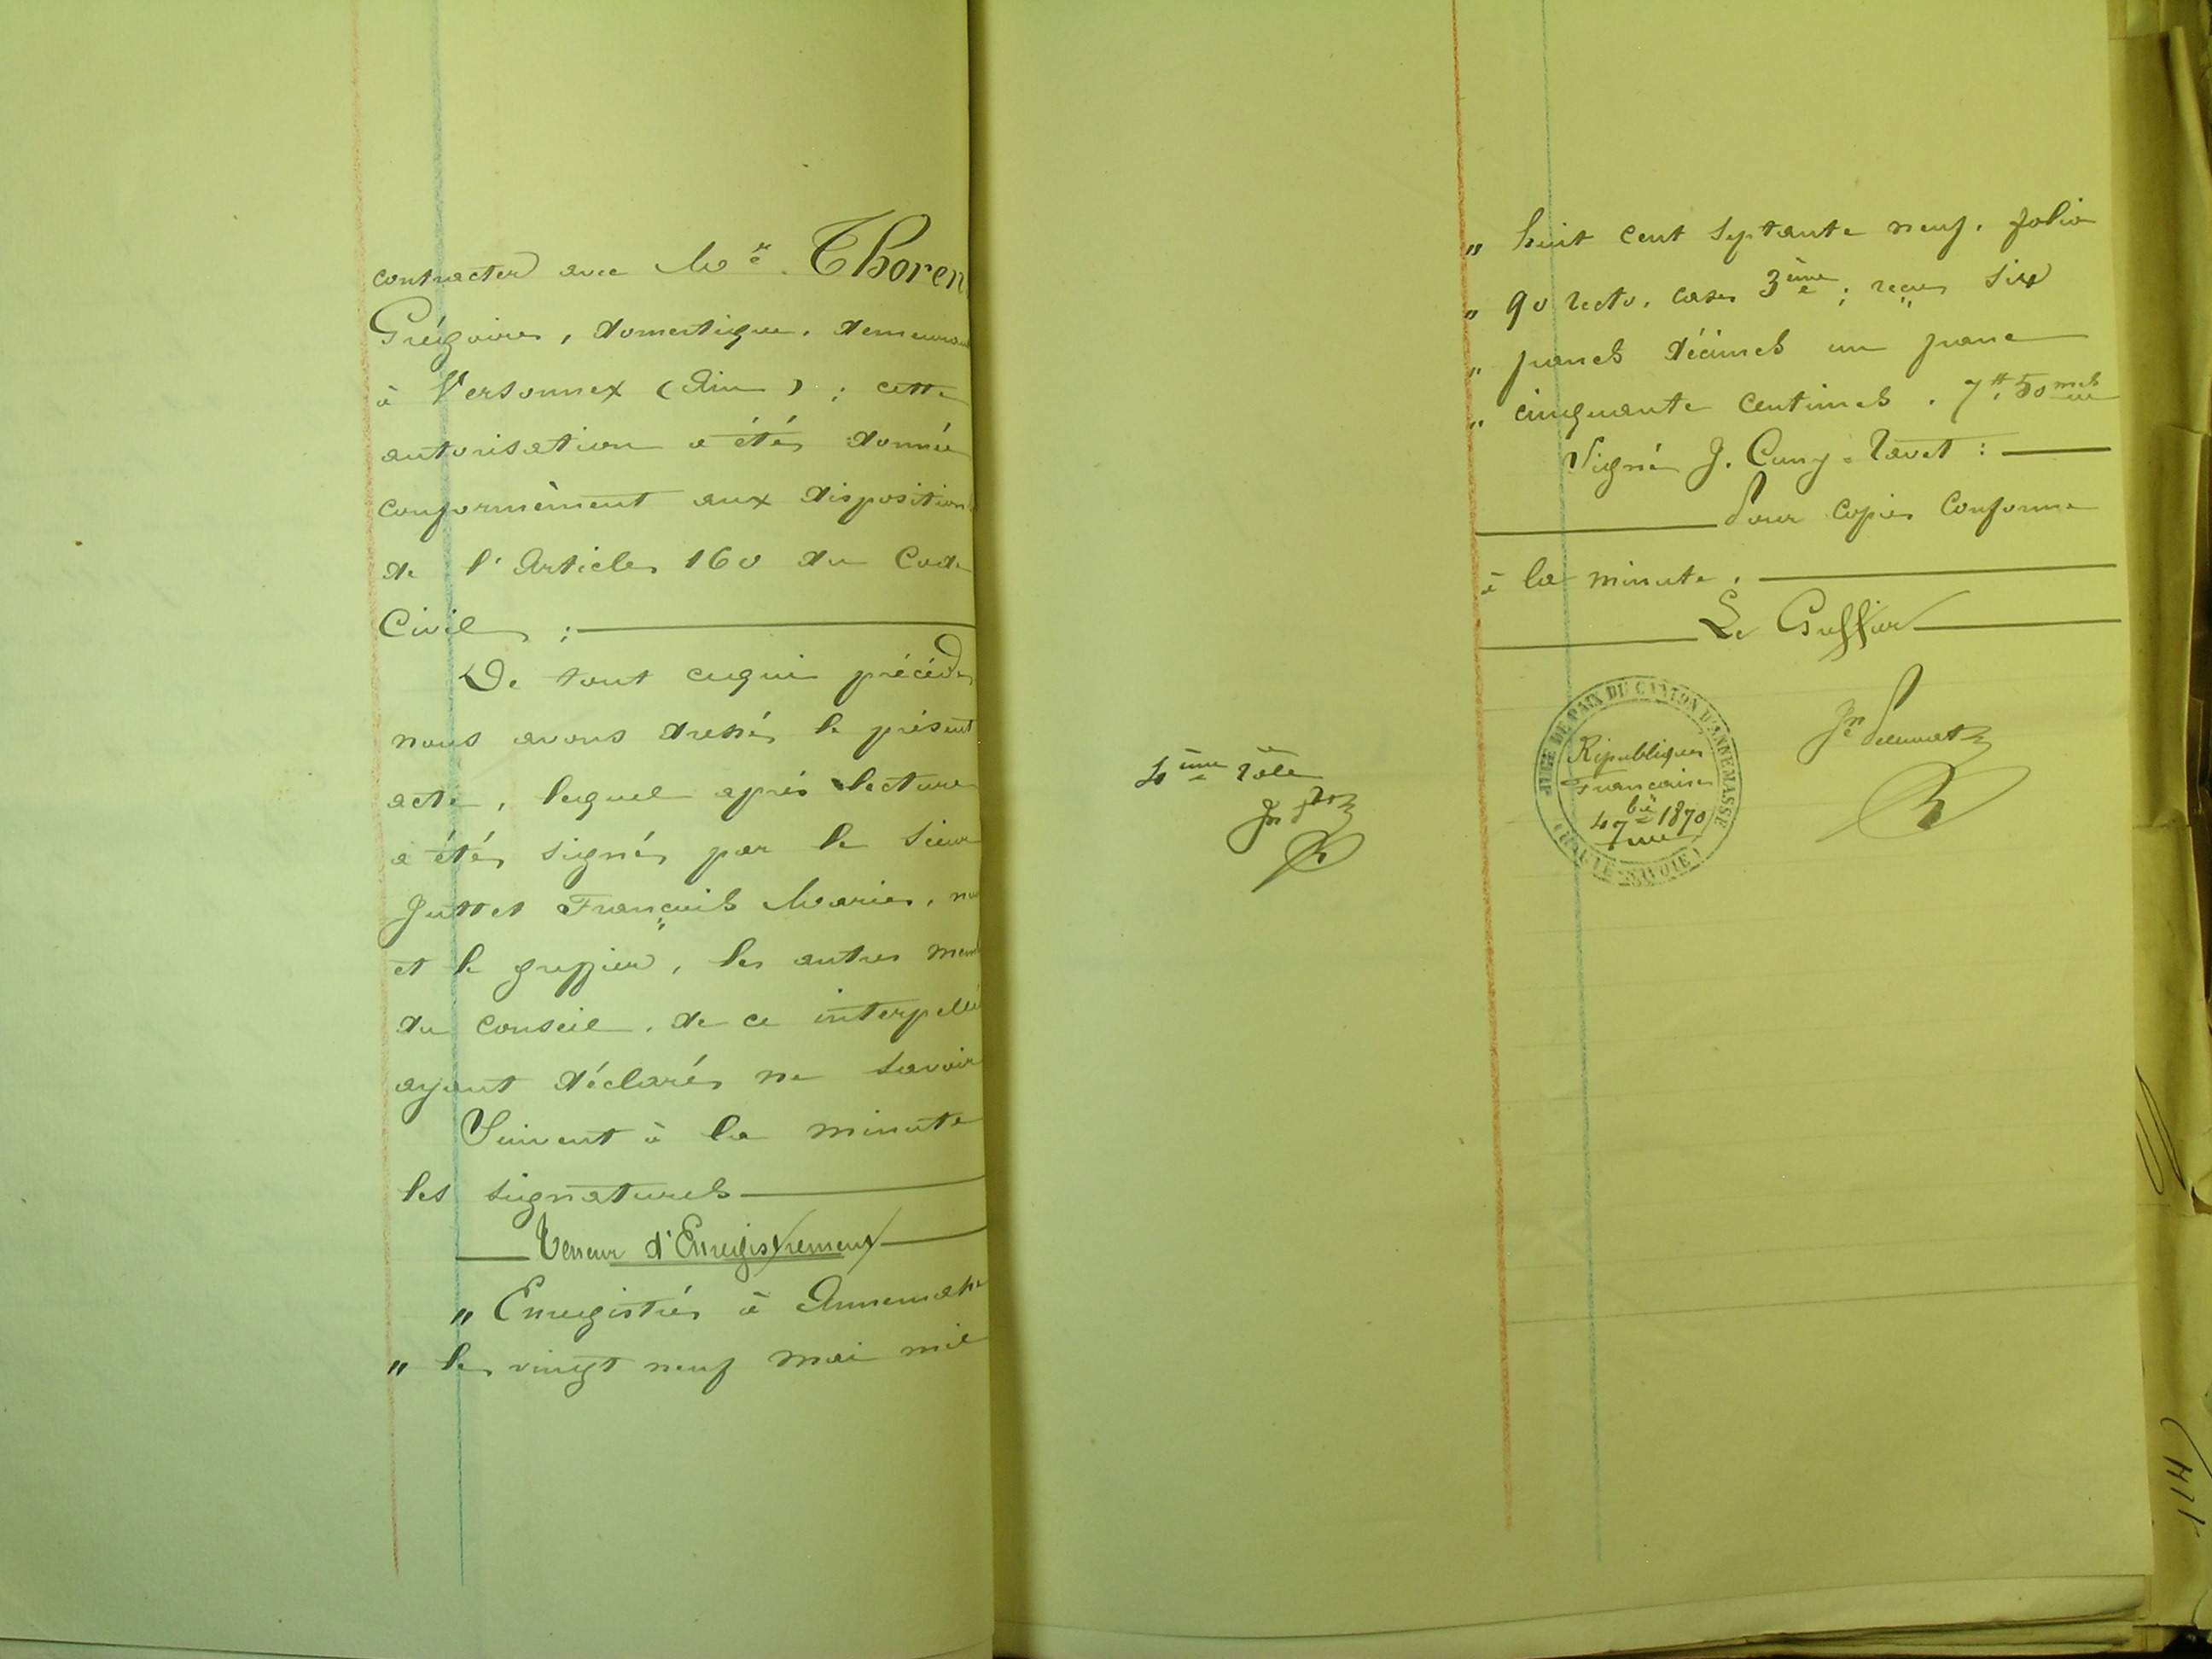 contracter avec Mr. Thoren
Grégoire, domestique, demeurant
à Versonnex (Ain) ; cette
autorisation a été donnée
conformément aux disposition
de l'Article 160 du Code
Civil ;
De tout cequi précède
nous avons dressé le présent
acte, lequel après lecture
a été signé par le Sieur
Juttet François Marie, nous
et le greffier, les autres mem
du conseil, de ce interpellé
ayant déclaré ne savoir
Suivent à la minute
les signatures
Teneur d'Enregistrement
" Enregistré à Annemasse
" le vingt neuf mai mil
4ème rôle
" huit cent septante neuf, folio
" 90 recto, case 3ème ; reçu six
" francs décimes un franc
" cinquante centimes . 7 ff 50 mes
Signé J. Cuny-Ravet :
Pour copie conforme
à la minute.
Le Greffier
JUGE DE PAIX DU CANTON D'ANNEMASSE
République
Française
4 7bre 1870
(HAUTE-SAVOIE)